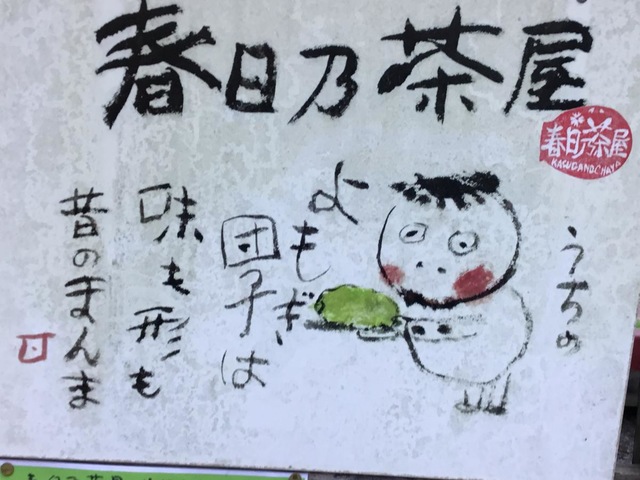 春日乃茶屋
春日乃茶屋
KASUGANOCHAYA
うちの
よもぎ
団子は
味も形も
昔のまんま
日